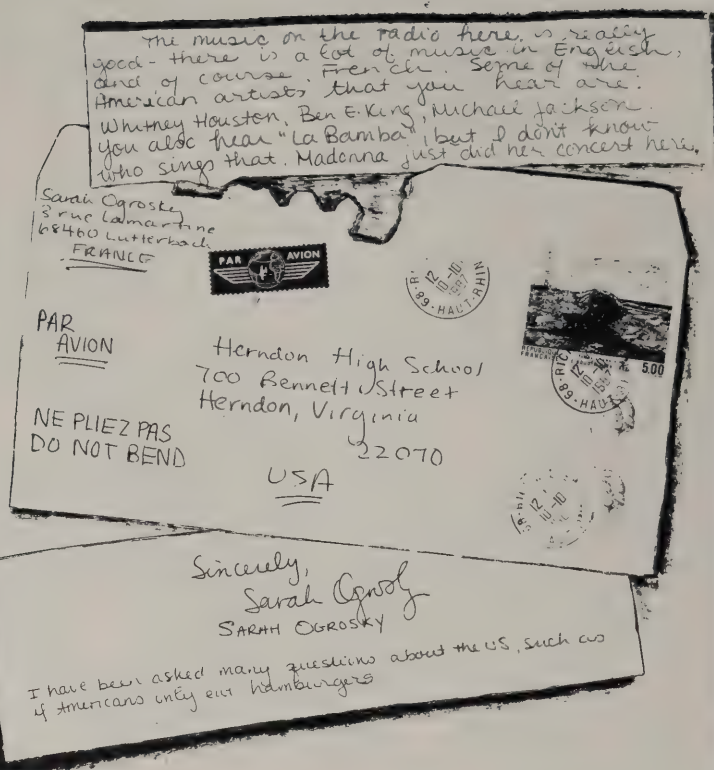 The music on the radio here, is really
good - there is a lot of music in English,
and of course, French. Some of the
American artists that you hear are:
Whitney Houston, Ben E. King, Michael Jackson.
You also hear "La Bamba", but I don't know
who sings that. Madonna just did her concert here.
Sarah Ogrosky
3 rue Lamartine
68460 Lutterbach
FRANCE
PAR AVION
12
10-10
1987
89-HAUT-RHIN
PAR
AVION
Herndon High School
700 Bennett Street
Herndon, Virginia
22070
USA
NE PLIEZ PAS
DO NOT BEND
5.00
12
10-10
89-HAUT
12
10-10
Sincerely,
Sarah Ogrosky
SARAH OGROSKY
I have been asked many questions about the US, such as
if Americans only eat hamburgers